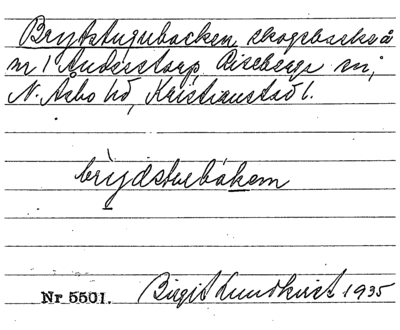 Brytstugubacken, skogsbacke å
nr 1 Anderstorp, Riseberga sn,
N. Åsbo hd, Kristianstad l.
brydstuebakem
Nr 5501. Birgit Lundkvist 1935